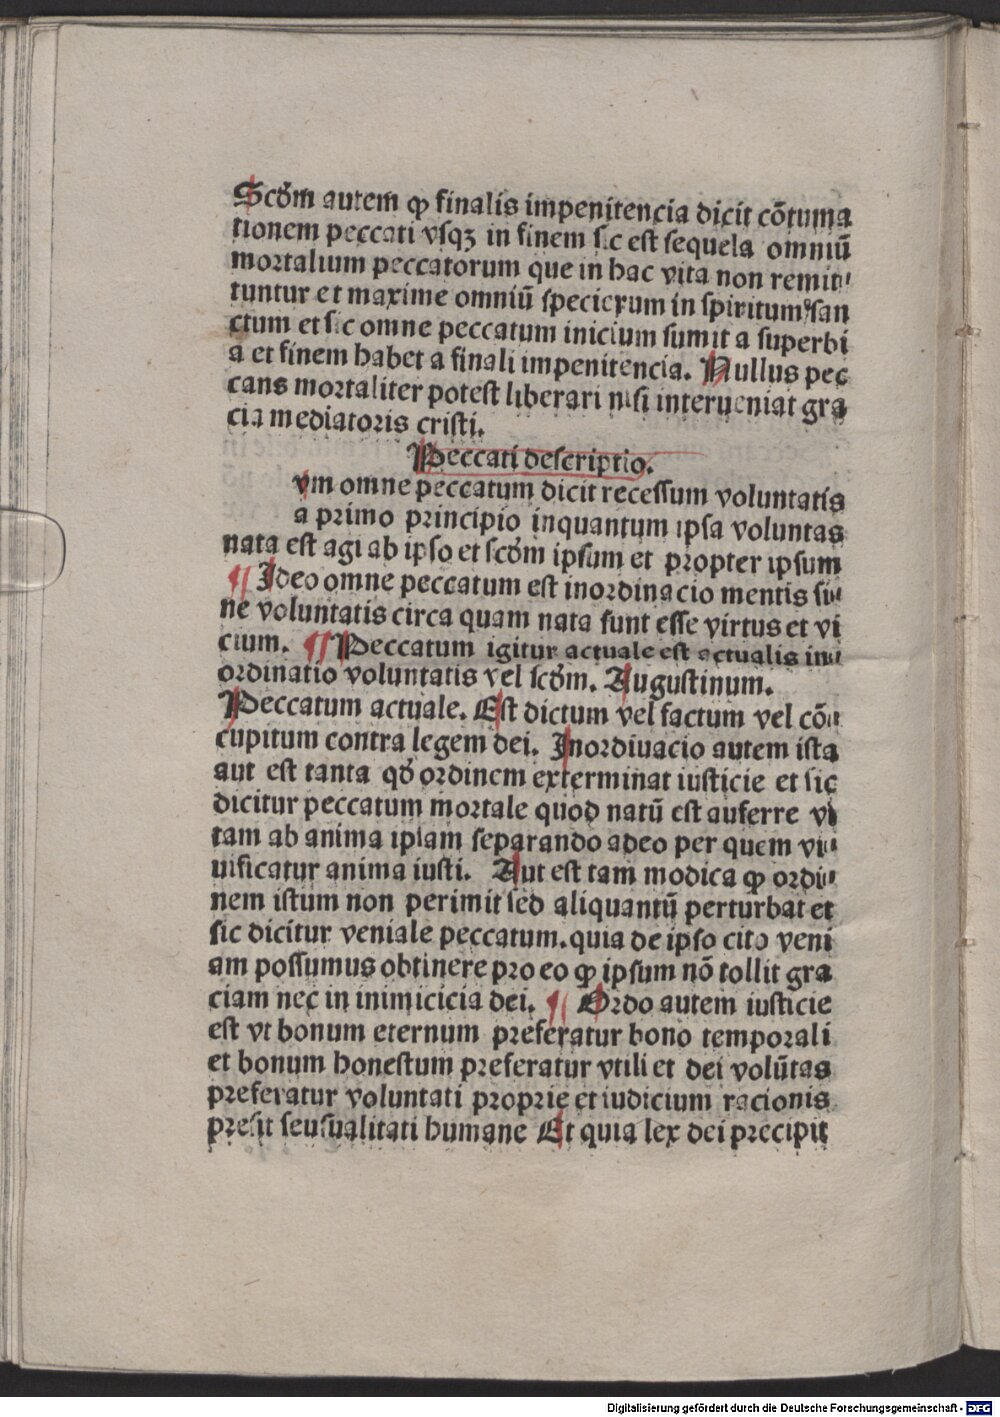 Scḋm autem ꝙ finalis impenitencia dicit cōtuma
tionem peccati vsqꝫ in finem sic est sequela omniū
mortalium peccatorum que in hac vita non remit⸗
tuntur et maxime omniū specierum in spiritum san
ctum et sic omne peccatum inicium sumit a superbi
a et finem habet a finali impenitencia. Nullus pec
cans mortaliter potest liberari nisi interueniat gra
cia mediatoris cristi.
Peccati descriptio.
vm omne peccatum dicit recessum voluntatis
a primo principio inquantum ipsa voluntas
nata est agi ab ipso et scḋm ipsum et propter ipsum
¶ Ideo omne peccatum est inordinacio mentis si⸗
ne voluntatis circa quam nata sunt esse virtus et vi
cium. ¶ Peccatum igitur actuale est actualis in⸗
ordinatio voluntatis vel scḋm. Augustinum.
Peccatum actuale. Est dictum vel factum vel cō⸗
cupitum contra legem dei. Inordiuacio autem ista
aut est tanta qḋ ordinem exterminat iusticie et sic
dicitur peccatum mortale quod natū est auferre vi
tam ab anima ipsam separando adeo per quem vi⸗
uificatur anima iusti. Aut est tam modica ꝙ ordi⸗
nem istum non perimit sed aliquantū perturbat et
sic dicitur veniale peccatum. quia de ipso cito veni
am possumus obtinere pro eo ꝙ ipsum nō tollit gra
ciam nec in inimicicia dei. ¶ Ordo autem iusticie
est vt bonum eternum preferatur bono temporali
et bonum honestum preferatur vtili et dei volūtas
preferatur voluntati proprie et iudicium racionis
presit seusualitati humane Et quia lex dei precipit
Digitalisierung gefördert durch die Deutsche Forschungsgemeinschaft - DFG